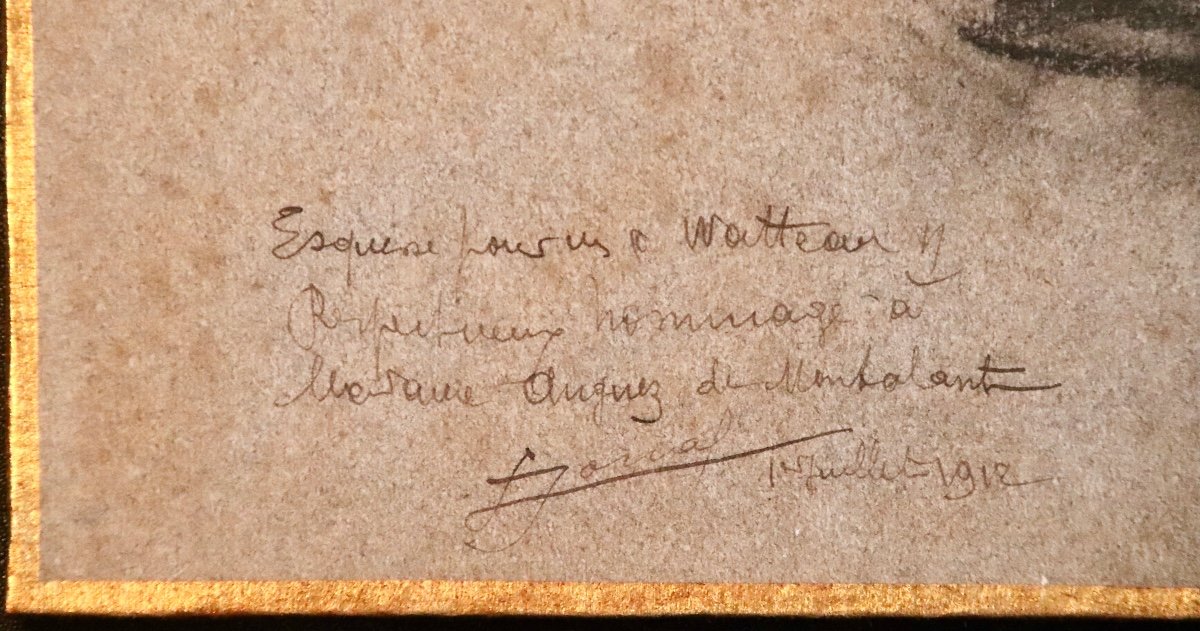 Esquisse pour un « Watteau »
Respectueux hommage à
Madame Auguez de Montalant
1er Juillet 1912